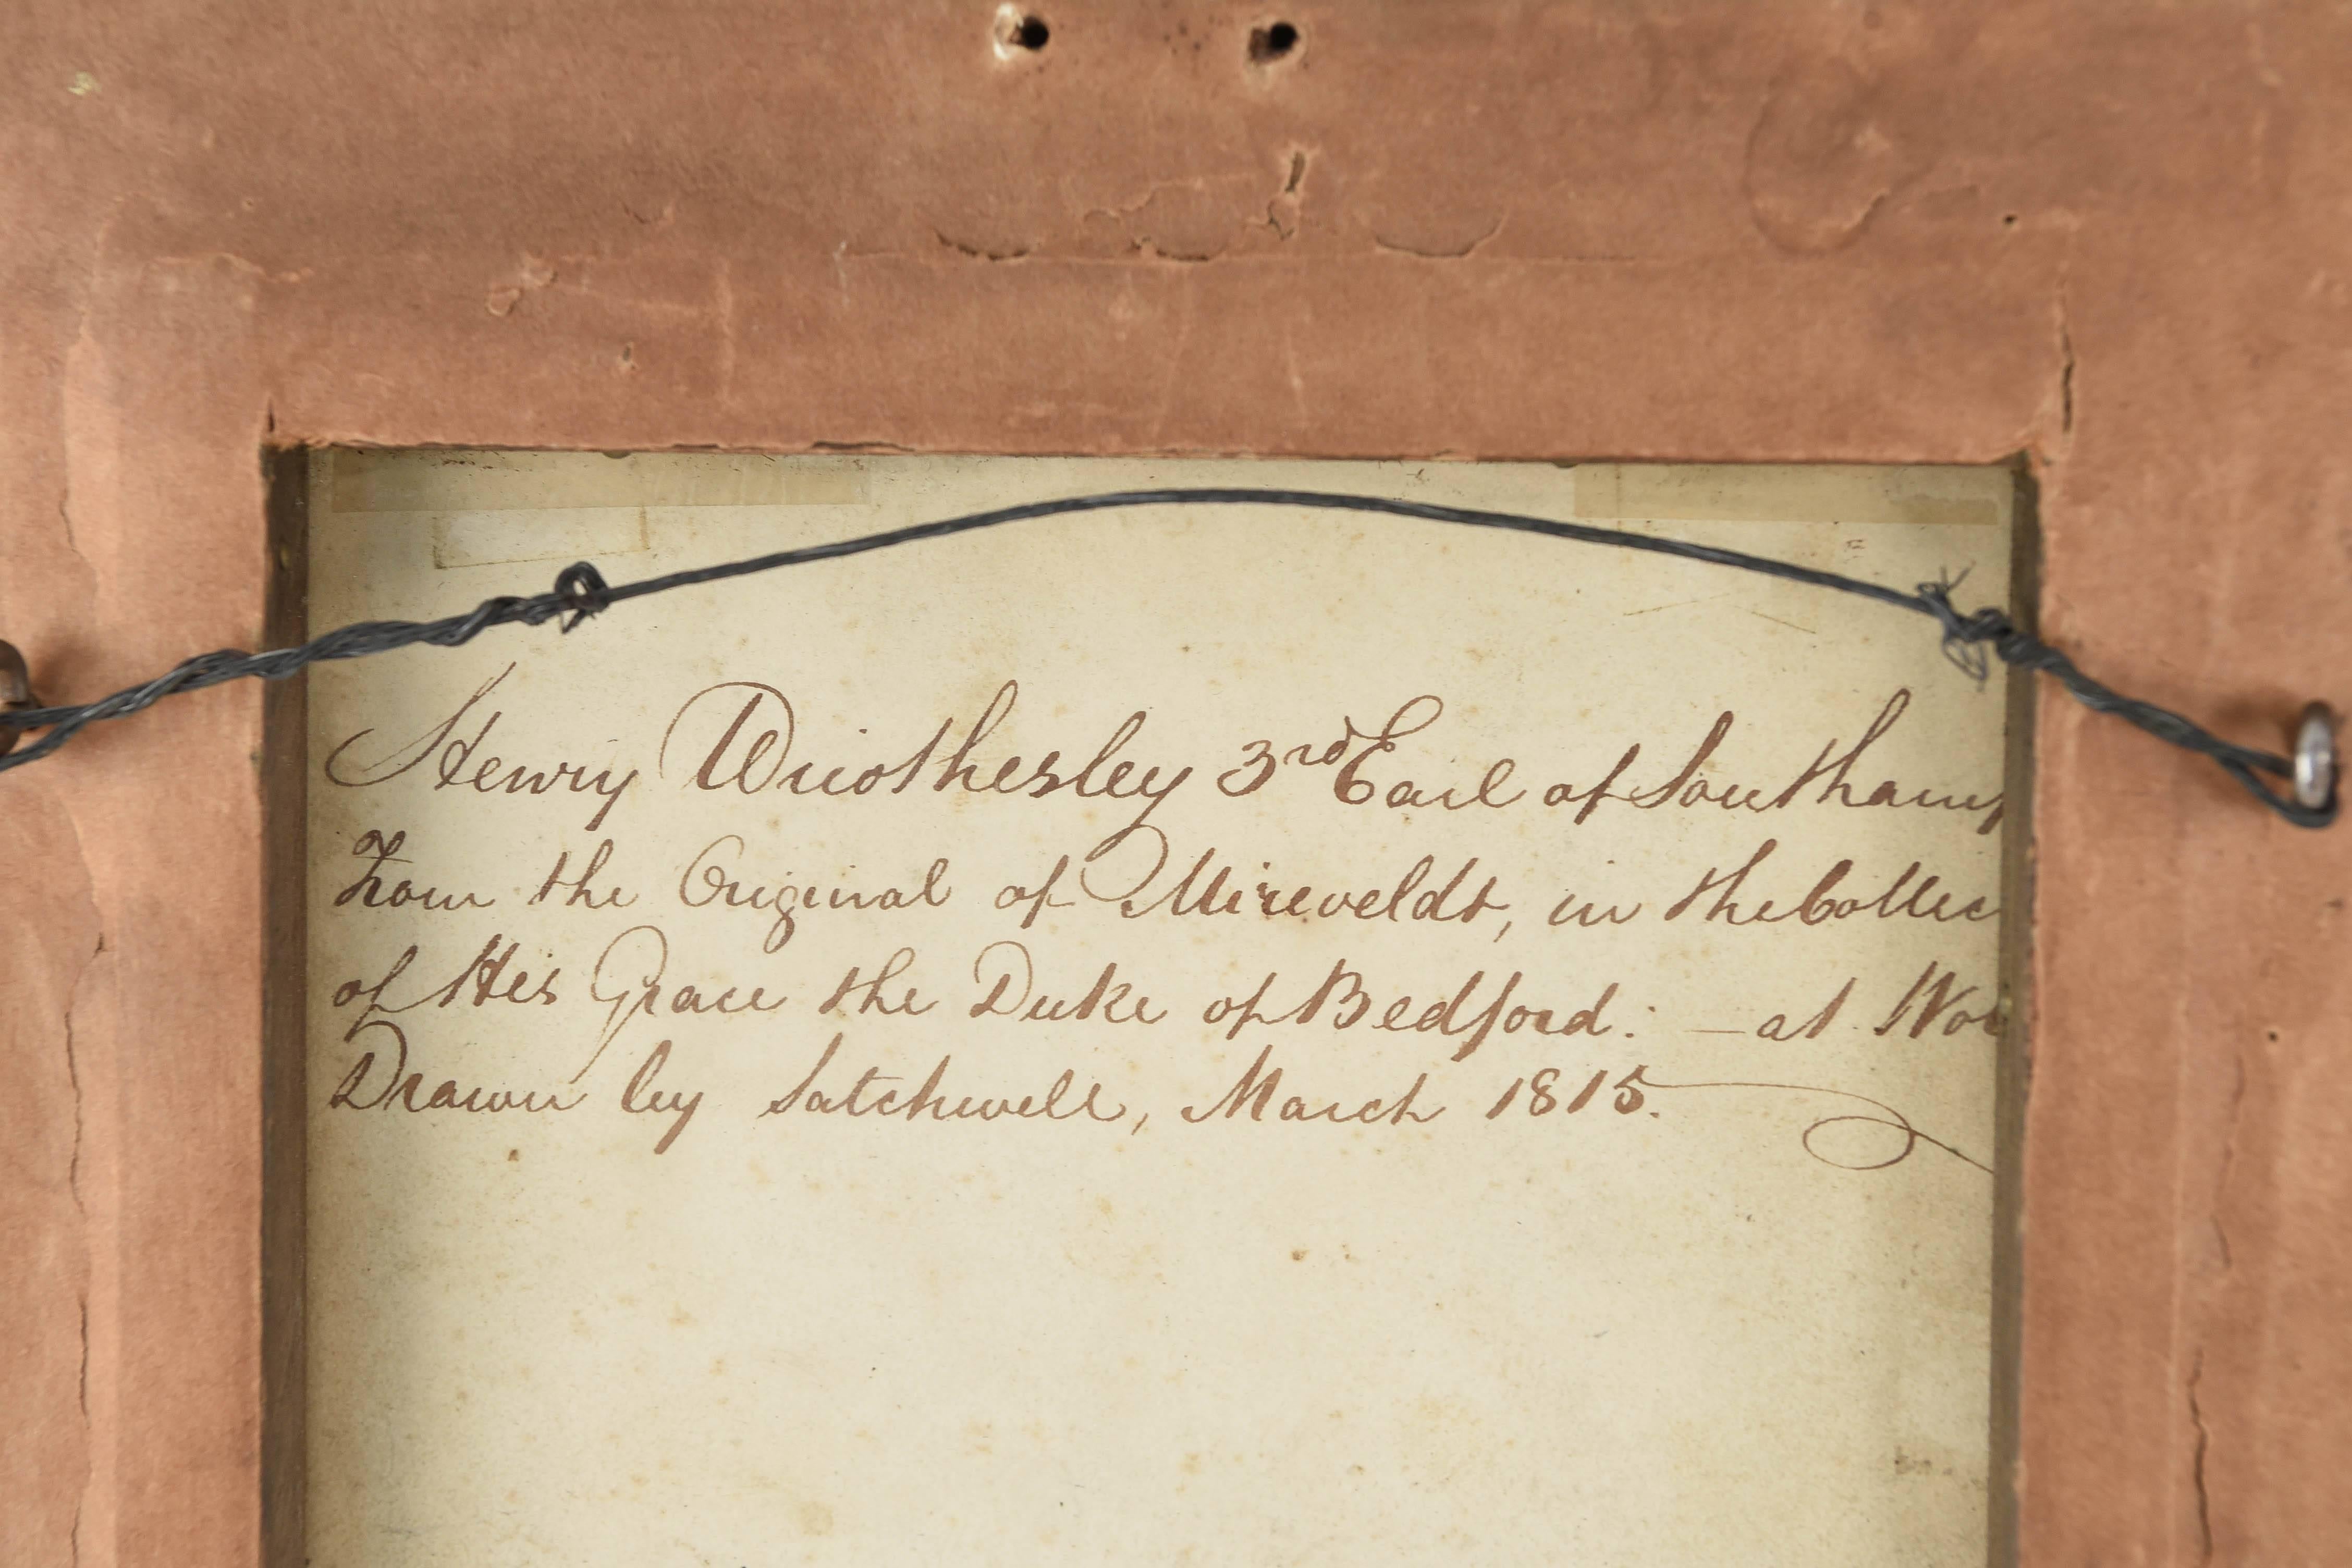 Henry Wriothesley 3rd Earl of Southamp
From the Original of Mireveldt, in the Collec
of His Grace the Duke of Bedford: — at Wo
Drawn by Satchwell, March 1815.